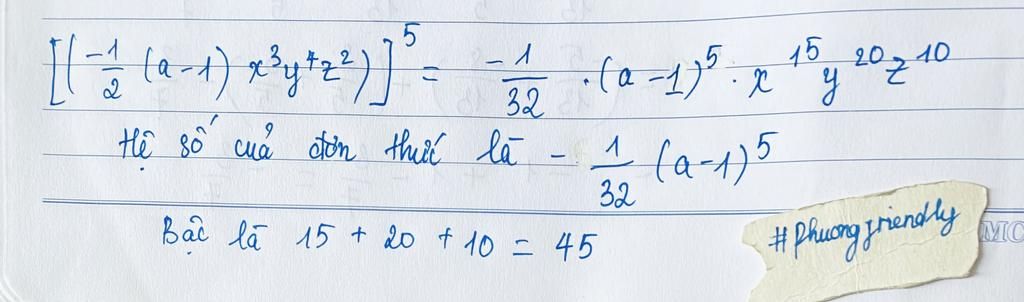 [(-1/2 (a-1) x³y⁴z²)]⁵ = -1/32 .(a-1)⁵. x¹⁵y²⁰z¹⁰
Hệ số của đơn thức là - 1/32 (a-1)⁵
Bậc là 15 + 20 + 10 = 45
#Phuongfriendly
MC